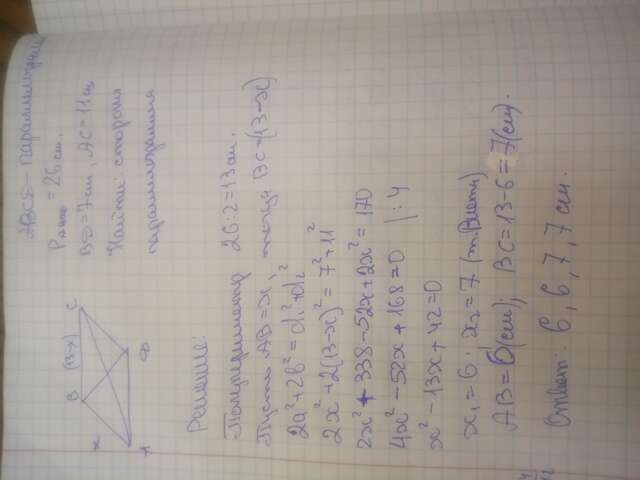 ABCD - параллелограмм
Pпар = 26 см.
BD = 7 см, AC = 11 см
Найти: стороны
параллелограмма
B (13-x) C
x
A D
Решение:
Полупериметр 26:2=13 см.
Пусть AB=x, тогда BC-(13-x)
2a²+2b²=d₁²+d₂²
2x²+2(13-x)²=7²+11²
2x²+338-52x+2x²=170
4x²-52x+168=0 |:4
x²-13x+42=0
x₁=6; x₂=7 (т.Виета)
AB=6(см), BC=13-6=7(см).
Ответ: 6, 6, 7, 7 см.